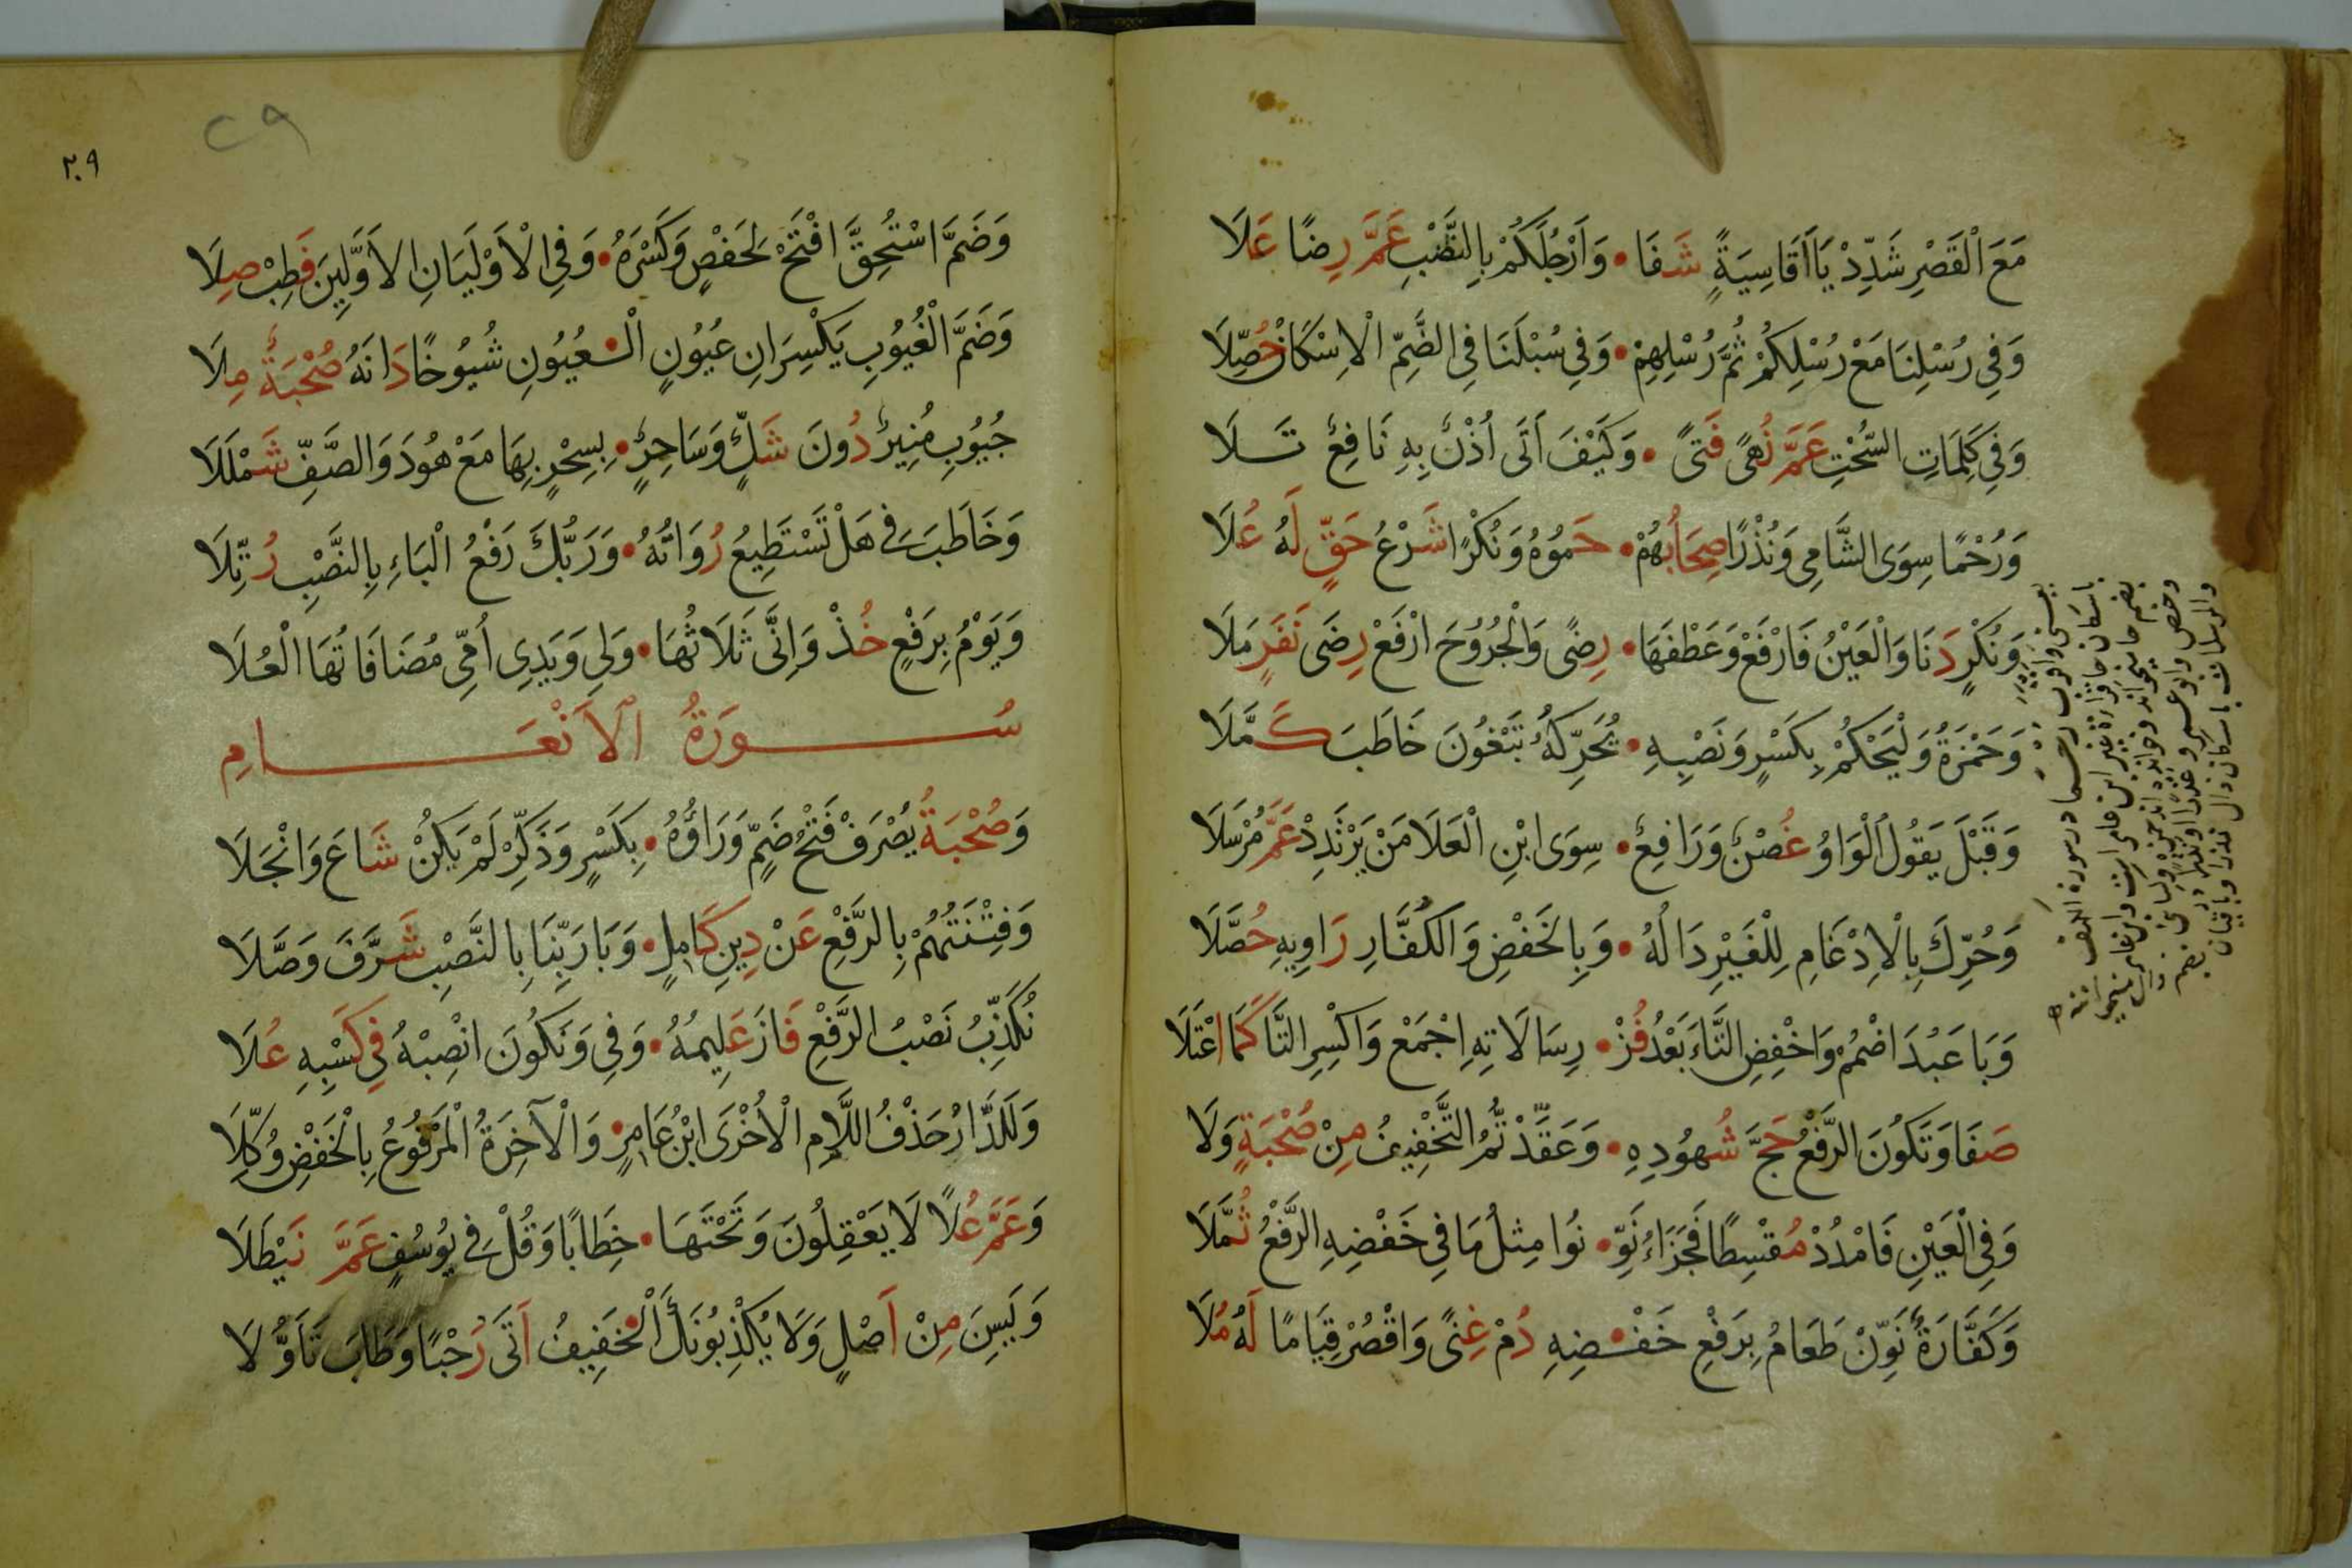 مَعَ الْقَصْرِ شَدِّدْ يَاأَ قَاسِيَةً شَفَا • وَأَرْجُلَكُمْ بِالنَّصْبِ عَمَّ رِضًا عَلَا
وَفِي رُسْلِنَا مَعْ رُسْلِكُمْ ثُمَّ رُسْلِهِمْ • وَفِي سُبْلَنَا فِي الضَّمِّ الْاِسْكَانُ حُصِّلَا
وَفِي كَلِمَاتِ السُّحْتِ عَمَّ نُهًى فَتًى • وَكَيْفَ أَتَى أُذْنٌ بِهِ نَافِعٌ تَلَا
وَرُحْمًا سِوَى الشَّامِي وَنُذْرًا صِحَابُهُمْ • حَمَوْهُ وَنُكْرًا شَرْعُ حَقٍّ لَهُ عُلَا
وَنُكْرٍ دَنَا وَالْعَيْنُ فَارْفَعْ وَعَطْفَهَا • رِضًى وَالْجُرُوحَ ارْفَعْ رِضَى نَفَرٍ مَلَا
وَحَمْزَةُ وَلْيَحْكُمْ بِكَسْرٍ وَنَصْبِهِ • يُحَرِّكُهُ تَبْغُونَ خَاطَبَ كَمَّلَا
وَقَبْلَ يَقُولُ الْوَاوُ غُصْنٌ وَرَافِعٌ • سِوَى ابْنِ الْعَلَا مَنْ يَرْتَدِدْ عَمَّ مُرْسَلَا
وَحُرِّكَ بِالْاِدْغَامِ لِلْغَيْرِ دَالُهُ • وَبِالْخَفْضِ وَالْكُفَّارِ رَاوِيهِ حُصَّلَا
وَبَا عَبُدَ اضْمُمْ وَاخْفِضِ التَّاءَ بَعْدُ فُزْ • رِسَالَاتِهِ اجْمَعْ وَاكْسِرِ التَّا كَمَا اعْتَلَا
صَفَا وَتَكُونَ الرَّفْعُ حَجَّ شُهُودِهِ • وَعَقَّدْتُّمُ التَّخْفِيفُ مِنْ صُحْبَةٍ وَلَا
وَفِي الْعَيْنِ فَامْدُدْ مُقْسِطًا فَجَزَاءُ نَوِّ • نُوا مِثْلُ مَا فِي خَفْضِهِ الرَّفْعُ ثُمَّلَا
وَكَفَّارَةٌ نَوِّنْ طَعَامُ بِرَفْعِ خَفْ • ضِهِ دُمْ غِنًى وَاقْصُرْ قِيَامًا لَهُ مُلَا
٢٩
٢٠٩
وَضَمَّ اسْتُحِقَّ افْتَحْ لِحَفْصٍ وَكَسْرَهُ • وَفِي الْأَوْلَيَانِ الْأَوَّلِينَ فَطِبْ صِلَا
وَضَمَّ الْغُيُوبِ يَكْسِرَانِ عُيُونٍ الْ • عُيُونِ شُيُوخًا دَانَهُ صُحْبَةٌ مِلَا
جُيُوبِ مُنِيرٌ دُونَ شَكٍّ وَسَاحِرٌ • بِسِحْرٍ بِهَا مَعْ هُودَ وَالصَّفِّ شَمْلَلَا
وَخَاطَبَ فِي هَلْ تَسْتَطِيعُ رُوَاتُهُ • وَرَبُّكَ رَفْعُ الْبَاءِ بِالنَّصْبِ رُتِّلَا
وَيَوْمُ بِرَفْعٍ خُذْ وَإِنِّي ثَلَاثُهَا • وَلِي وَيَدِي أُمِّي مُضَافَاتُهَا الْعُلَا
سُورَةُ الْأَنْعَامِ
وَصُحْبَةُ يُصْرَفْ فَتْحُ ضَمٍّ وَرَاؤُهُ • بِكَسْرٍ وَذَكِّرْ لَمْ يَكُنْ شَاعَ وَانْجَلَا
وَفِتْنَتُهُمْ بِالرَّفْعِ عَنْ دِينِ كَامِلٍ • وَبَا رَبِّنَا بِالنَّصْبِ شَرَّفَ وَصَّلَا
نُكَذِّبُ نَصْبُ الرَّفْعِ فَازَ عَلِيمُهُ • وَفِي وَنَكُونَ انْصِبْهُ فِي كَسْبِهِ عُلَا
وَلَلدَّارُ حَذْفُ اللَّامِ الْأُخْرَى ابْنُ عَامِرٍ • وَالْآخِرَةُ الْمَرْفُوعُ بِالْخَفْضِ وُكِّلَا
وَعَمَّ عُلًا لَا يَعْقِلُونَ وَتَحْتَهَا • خِطَابًا وَقُلْ فِي يُوسُفٍ عَمَّ نَيْطَلَا
وَيَسِينَ مِنْ أَصْلٍ وَلَا يُكْذِبُونَكَ الْ • خَفِيفُ أَتَى رُحْبًا وَطَابَ تَأَوُّلَا